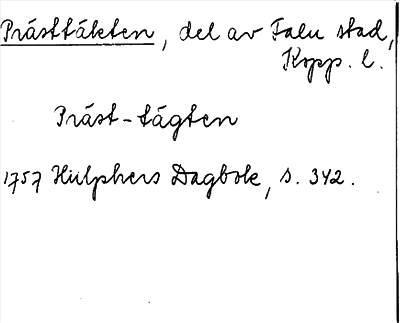 Prästtäkten, del av Falu stad,
Kopp. l.
Präst-tägten
1757 Hülphers Dagbok, s. 342.